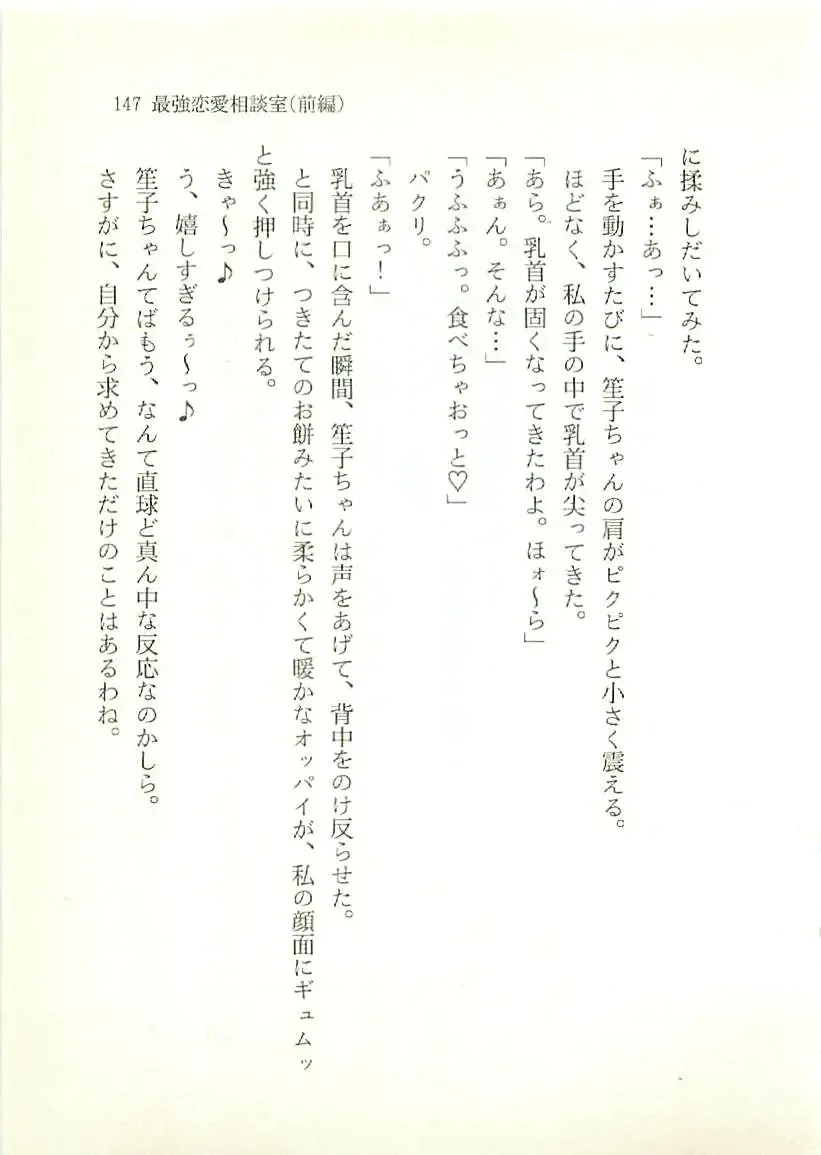 147 最強恋愛相談室(前編)
に揉みしだいてみた。
「ふぁ…あっ…」
手を動かすたびに、笙子ちゃんの肩がピクピクと小さく震える。
ほどなく、私の手の中で乳首が尖ってきた。
「あら。乳首が固くなってきたわよ。ほォ〜ら」
「あぁん。そんな…」
「うふふふっ。食べちゃおっと♡」
パクリ。
「ふあぁっ！」
乳首を口に含んだ瞬間、笙子ちゃんは声をあげて、背中をのけ反らせた。
と同時に、つきたてのお餅みたいに柔らかくて暖かなオッパイが、私の顔面にギュムッ
と強く押しつけられる。
きゃ〜っ♪
う、嬉しすぎるぅ〜っ♪
笙子ちゃんてばもう、なんて直球ど真ん中な反応なのかしら。
さすがに、自分から求めてきただけのことはあるわね。